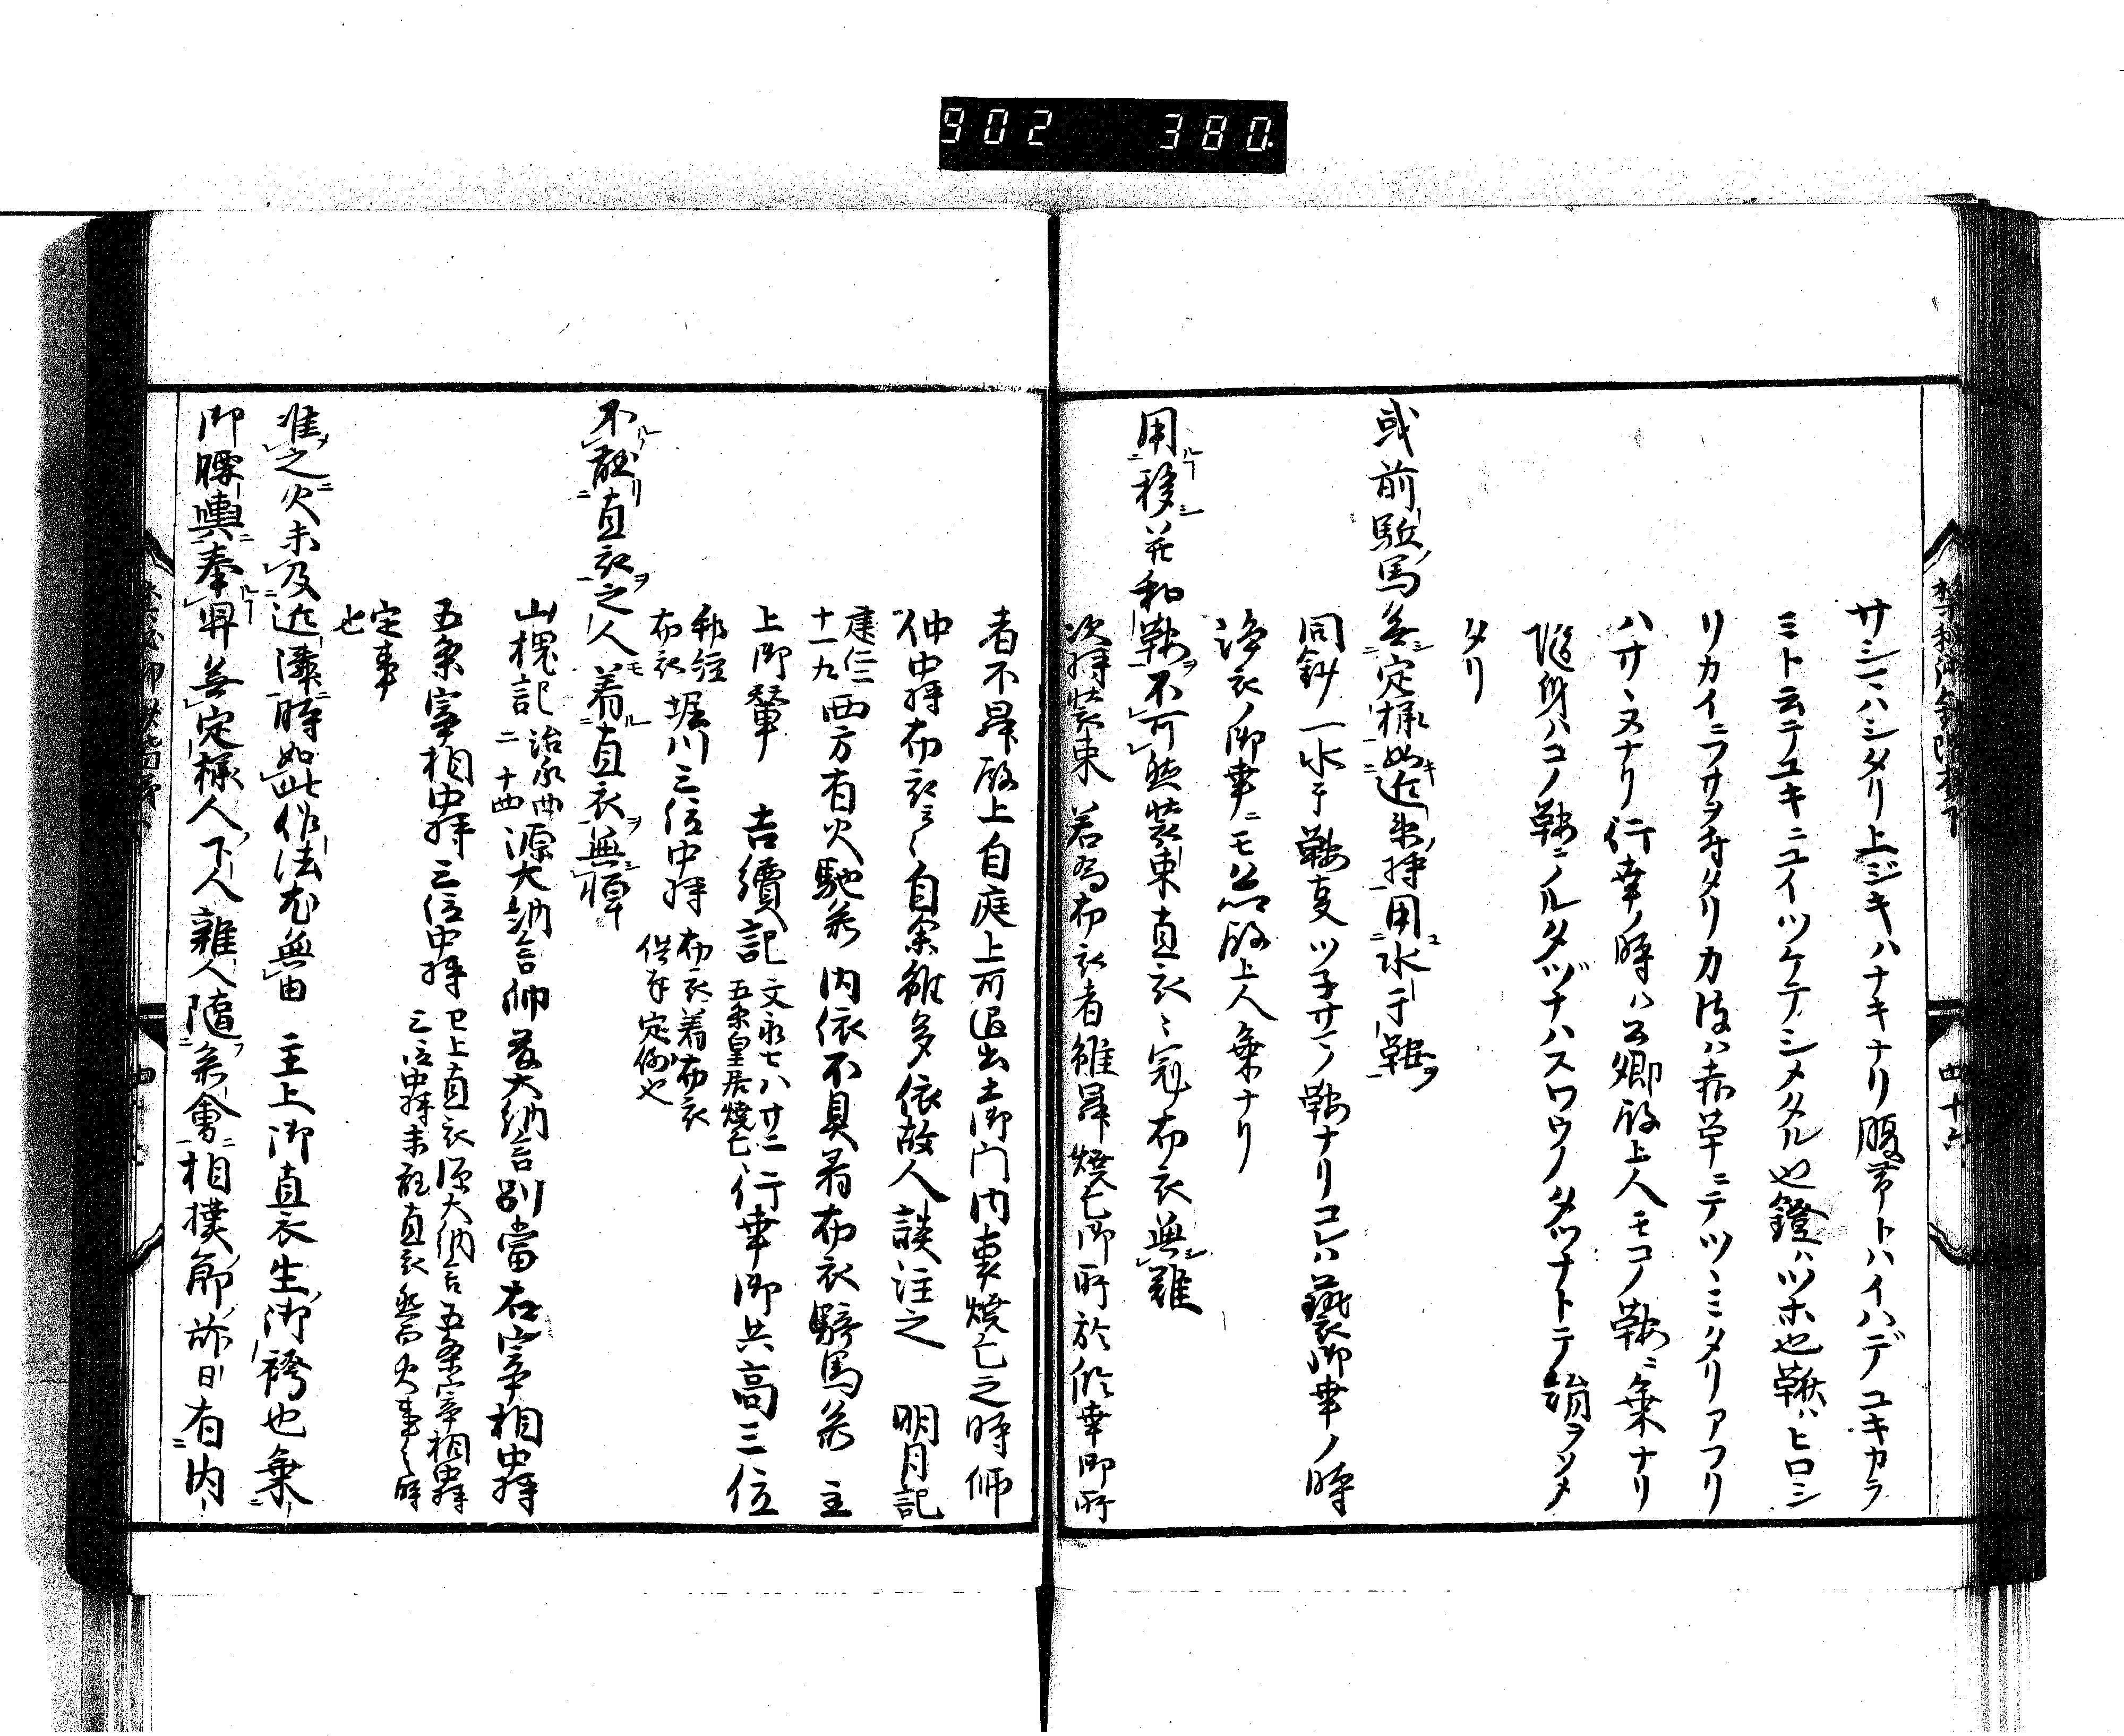 902 380
サシニハシタリ上ジキハナキナリ腹帯トハイハデユキカラ
ミト云テユキニユイツケテシメタル也鐙ハツホ也鞦ハヒロシ
リカイニフサヲ付タリ力皮ハ赤革ニテツヽミタリアフリ
ハサヽヌナリ行幸ノ時ハ公卿殿上人モコノ鞍ニ乗ナリ
随身ハコノ鞍ニノルタヅナハスワウノタツナトテ絹ヲソメ
タリ
或前駈馬無定様如近衛将用水干鞍
同鈔一水干鞍支ツ子サマノ鞍ナリコレハ褻御幸ノ時
浄衣ノ御幸ニモ公殿上人乗ナリ
用移并和鞍不可然装束直衣々冠布衣無難
次将装束 若為布衣者雖昇焼亡御所於臨幸御所
者不昇殿上自庭上可退出土御門内裏焼亡之時師
仲中将布衣云々自余雖多依故人談注之 明月記
建仁三十一九 西方有火馳参内依不具着布衣騎馬参 主
上御輦 吉續記 文永七八廿二五条皇居焼亡 行幸御共高三位
邦經布衣 堀川三位中将 布衣着布衣供奉定例也
不聴直衣之人着直衣無憚
山槐記 治承四二十四 源大納言帥 大納言別當右宰相中将
五条宰相中将三位中将 已上直衣源大納言五条宰相中将三位中将未聴直衣 火事之時
定事也
准之火未及近隣時如此作法尤無由 主上御直衣生御袴也乗
御腰輿奉舁無定様人下人雑人随参會相撲節前日有内